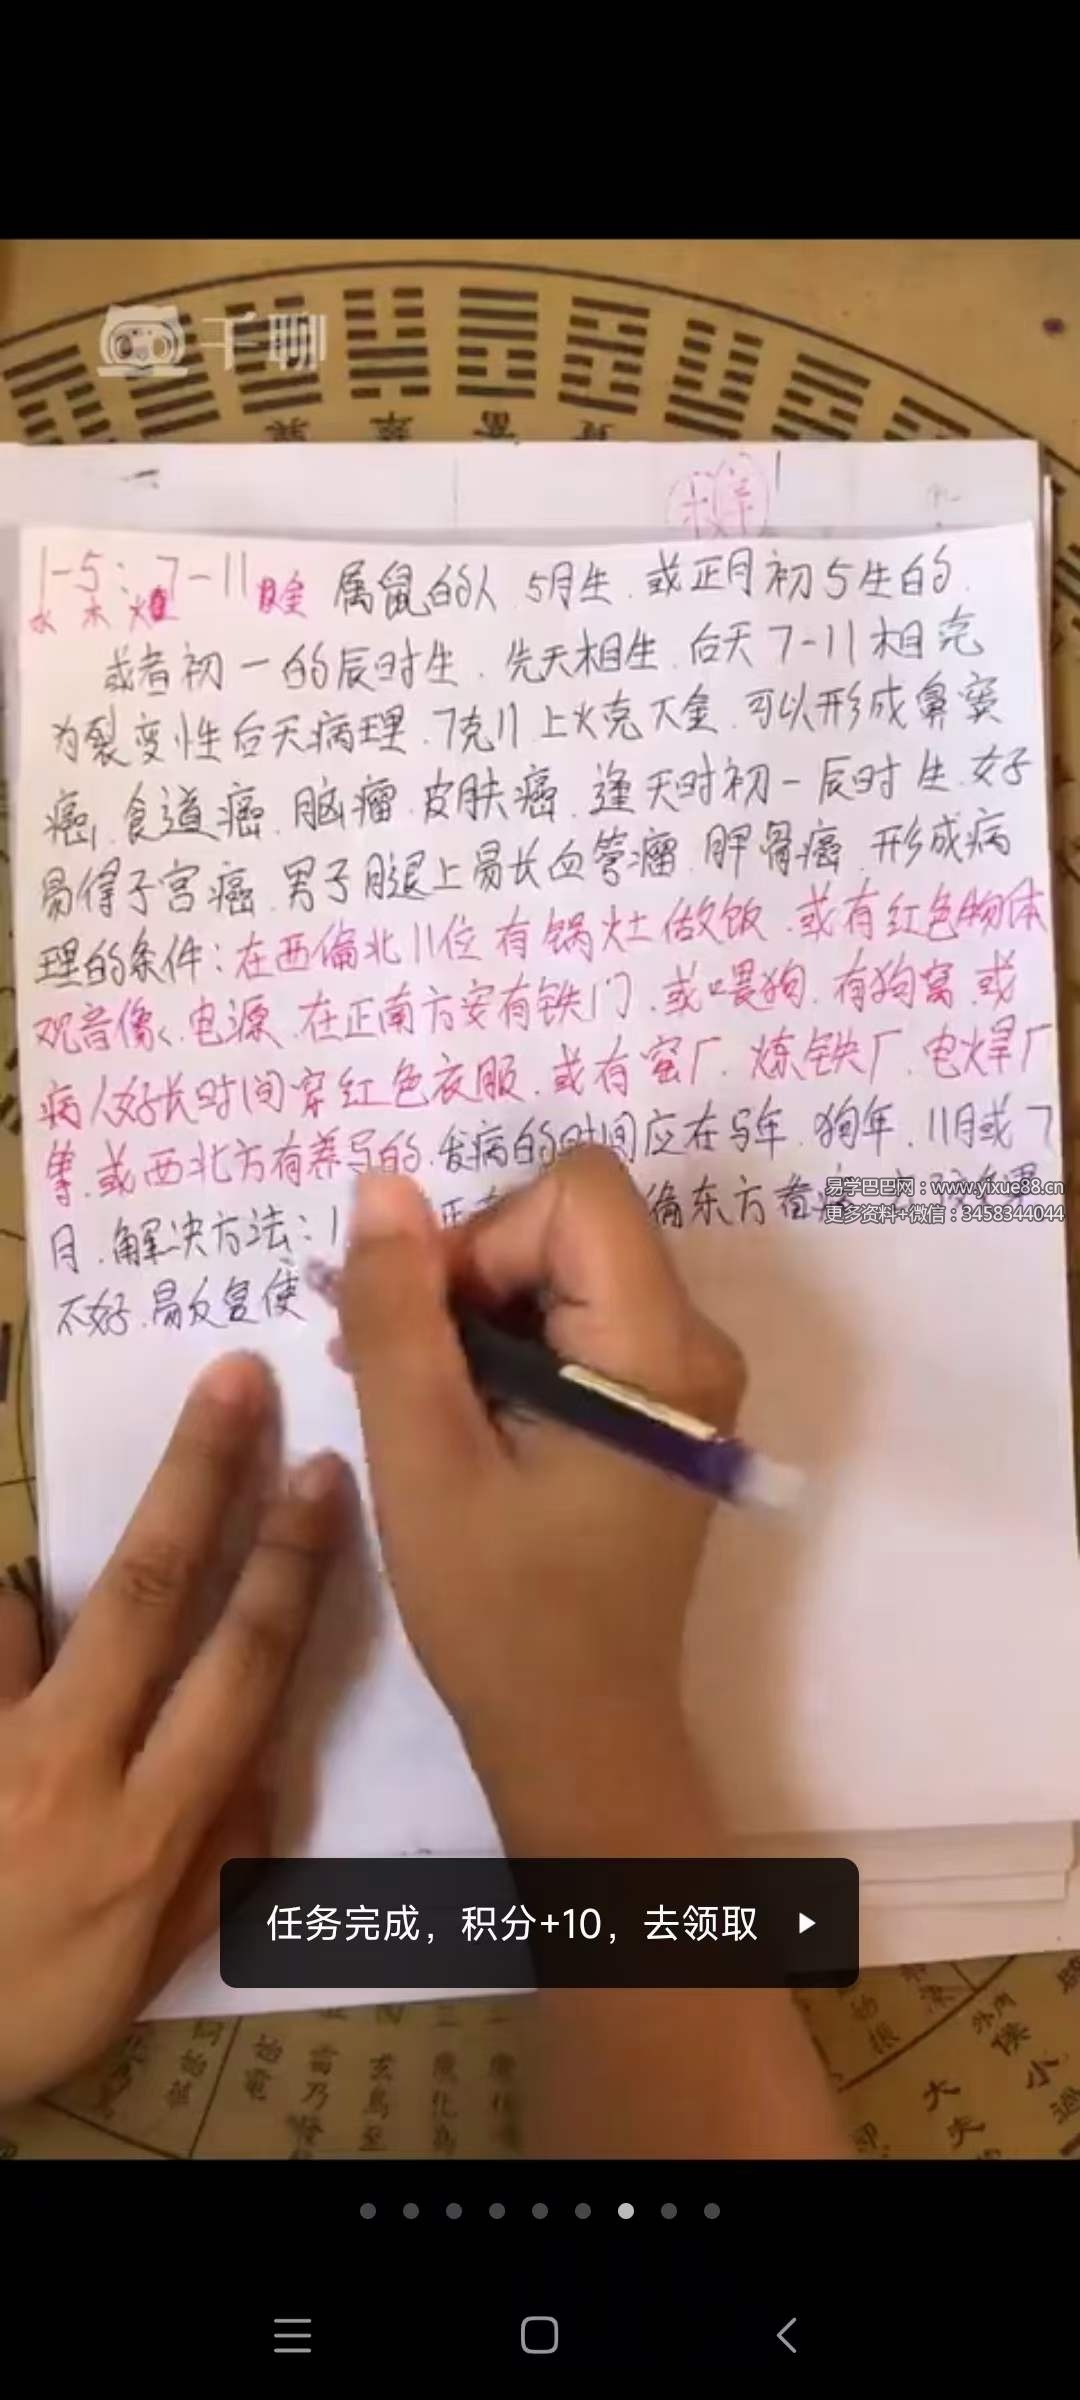 千聊
1-5: 7-11 属鼠的人.5月生.或正月初5生的.
水 木 火 金
或者初一的辰时生.先天相生.后天7-11相克
为裂变性后天病理.7克11上火克下金.可以形成鼻窦
癌.食道癌.脑瘤.皮肤癌.逢天时初一辰时生.女子
易得子宫癌.男子腿上易长血管瘤.胛骨癌.形成病
理的条件:在西偏北11位有锅灶做饭.或有红色物体
观音像.电源.在正南方安有铁门.或喂狗.有狗窝.或
病人好长时间穿红色衣服.或有窑厂.炼铁厂.电焊厂
等.或西北方有养马的.发病的时间应在马年.狗年.11月或7
易学巴巴网：www.yixue88.cn
更多资料+微信：3458344044
月.解决方法:1 偏东方看
不好.易反复使
任务完成，积分+10，去领取